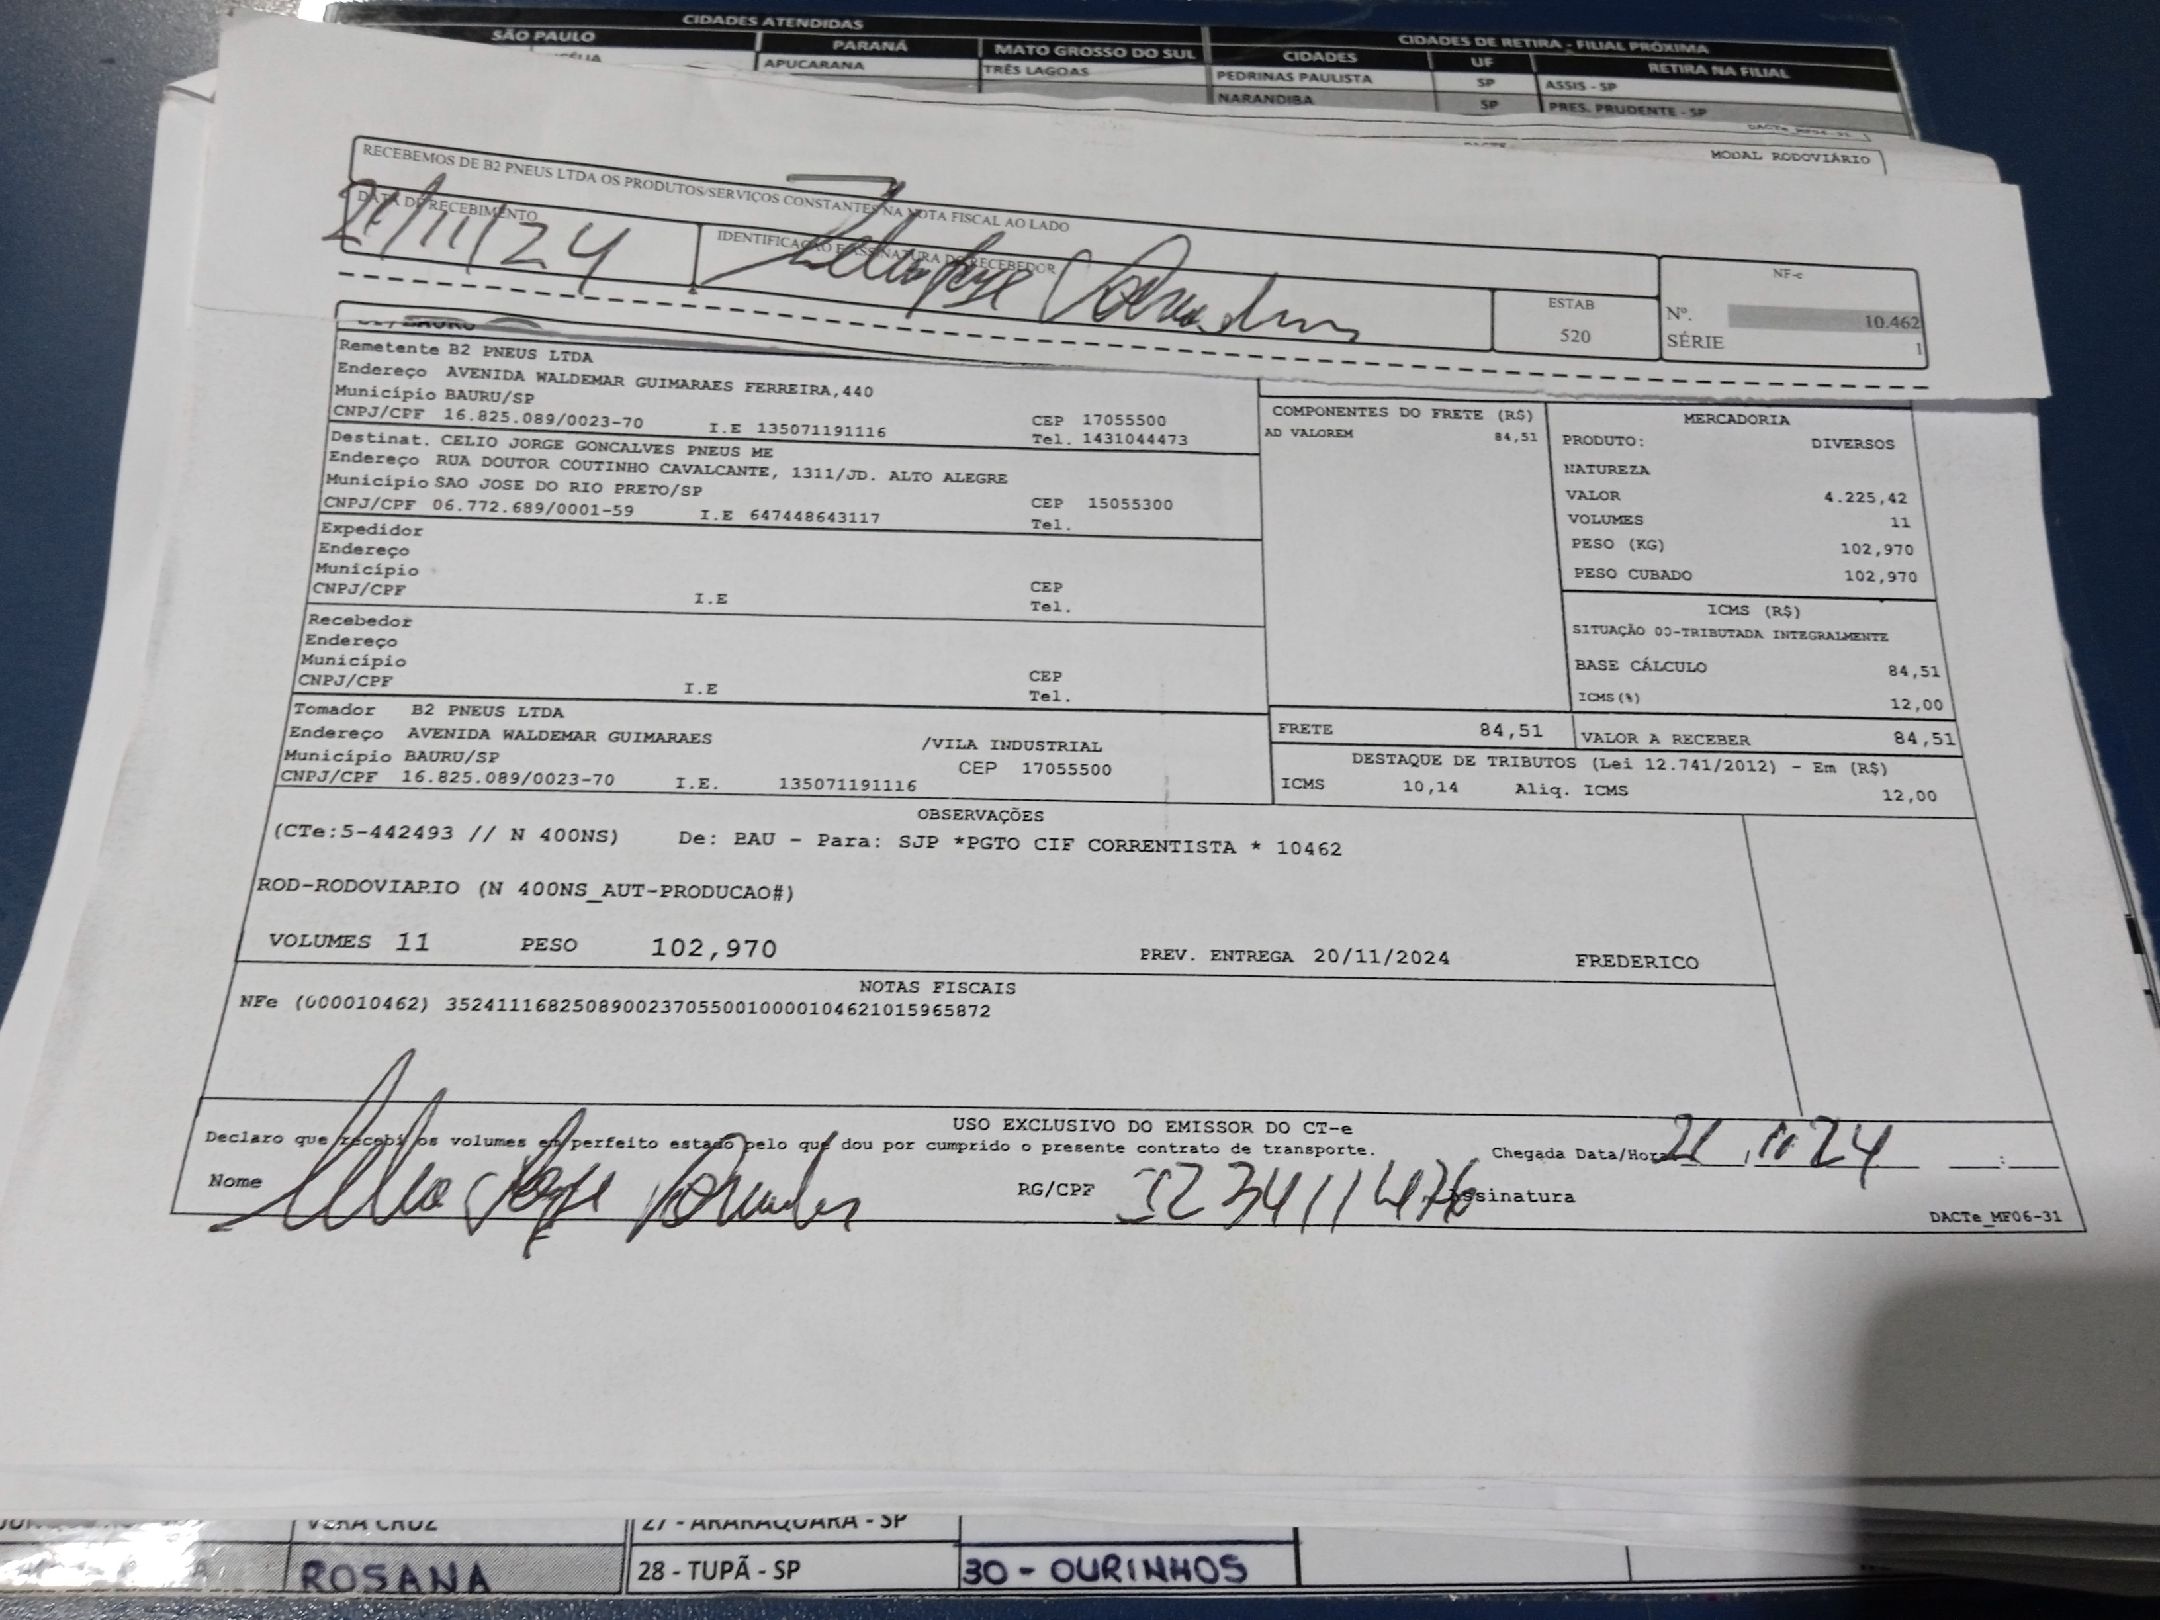 CIDADES ATENDIDAS
SÃO PAULO PARANÁ MATO GROSSO DO SUL
APUCARANA TRÊS LAGOAS
CIDADES DE RETIRA - FILIAL PRÓXIMA
CIDADES UF RETIRA NA FILIAL
PEDRINAS PAULISTA SP ASSIS - SP
NARANDIBA SP PRES. PRUDENTE - SP
DACTe_MF06-31
MODAL RODOVIÁRIO
RECEBEMOS DE B2 PNEUS LTDA OS PRODUTOS/SERVIÇOS CONSTANTES NA NOTA FISCAL AO LADO
DATA DE RECEBIMENTO
21/11/24
IDENTIFICAÇÃO E ASSINATURA DO RECEBEDOR
ESTAB
520
NF-e
Nº. 10.462
SÉRIE 1
Remetente B2 PNEUS LTDA
Endereço AVENIDA WALDEMAR GUIMARAES FERREIRA,440
Município BAURU/SP CEP 17055500
CNPJ/CPF 16.825.089/0023-70 I.E 135071191116 Tel. 1431044473
Destinat. CELIO JORGE GONCALVES PNEUS ME
Endereço RUA DOUTOR COUTINHO CAVALCANTE, 1311/JD. ALTO ALEGRE
Município SAO JOSE DO RIO PRETO/SP CEP 15055300
CNPJ/CPF 06.772.689/0001-59 I.E 647448643117 Tel.
Expedidor
Endereço
Município CEP
CNPJ/CPF I.E Tel.
Recebedor
Endereço
Município CEP
CNPJ/CPF I.E Tel.
Tomador B2 PNEUS LTDA
Endereço AVENIDA WALDEMAR GUIMARAES /VILA INDUSTRIAL
Município BAURU/SP CEP 17055500
CNPJ/CPF 16.825.089/0023-70 I.E. 135071191116
COMPONENTES DO FRETE (R$)
AD VALOREM 84,51
MERCADORIA
PRODUTO: DIVERSOS
NATUREZA
VALOR 4.225,42
VOLUMES 11
PESO (KG) 102,970
PESO CUBADO 102,970
ICMS (R$)
SITUAÇÃO 00-TRIBUTADA INTEGRALMENTE
BASE CÁLCULO 84,51
ICMS(%) 12,00
FRETE 84,51 VALOR A RECEBER 84,51
DESTAQUE DE TRIBUTOS (Lei 12.741/2012) - Em (R$)
ICMS 10,14 Aliq. ICMS 12,00
OBSERVAÇÕES
(CTe:5-442493 // N 400NS) De: BAU - Para: SJP *PGTO CIF CORRENTISTA * 10462
ROD-RODOVIARIO (N 400NS_AUT-PRODUCAO#)
VOLUMES 11 PESO 102,970 PREV. ENTREGA 20/11/2024 FREDERICO
NOTAS FISCAIS
NFe (000010462) 35241116825089002370550010000104621015965872
USO EXCLUSIVO DO EMISSOR DO CT-e
Declaro que recebi os volumes em perfeito estado pelo que dou por cumprido o presente contrato de transporte. Chegada Data/Hora 21 11 24 :
Nome RG/CPF Assinatura
DACTe_MF06-31
VERA CRUZ 27 - ARARAQUARA - SP
ROSANA 28 - TUPÃ - SP 30 - OURINHOS